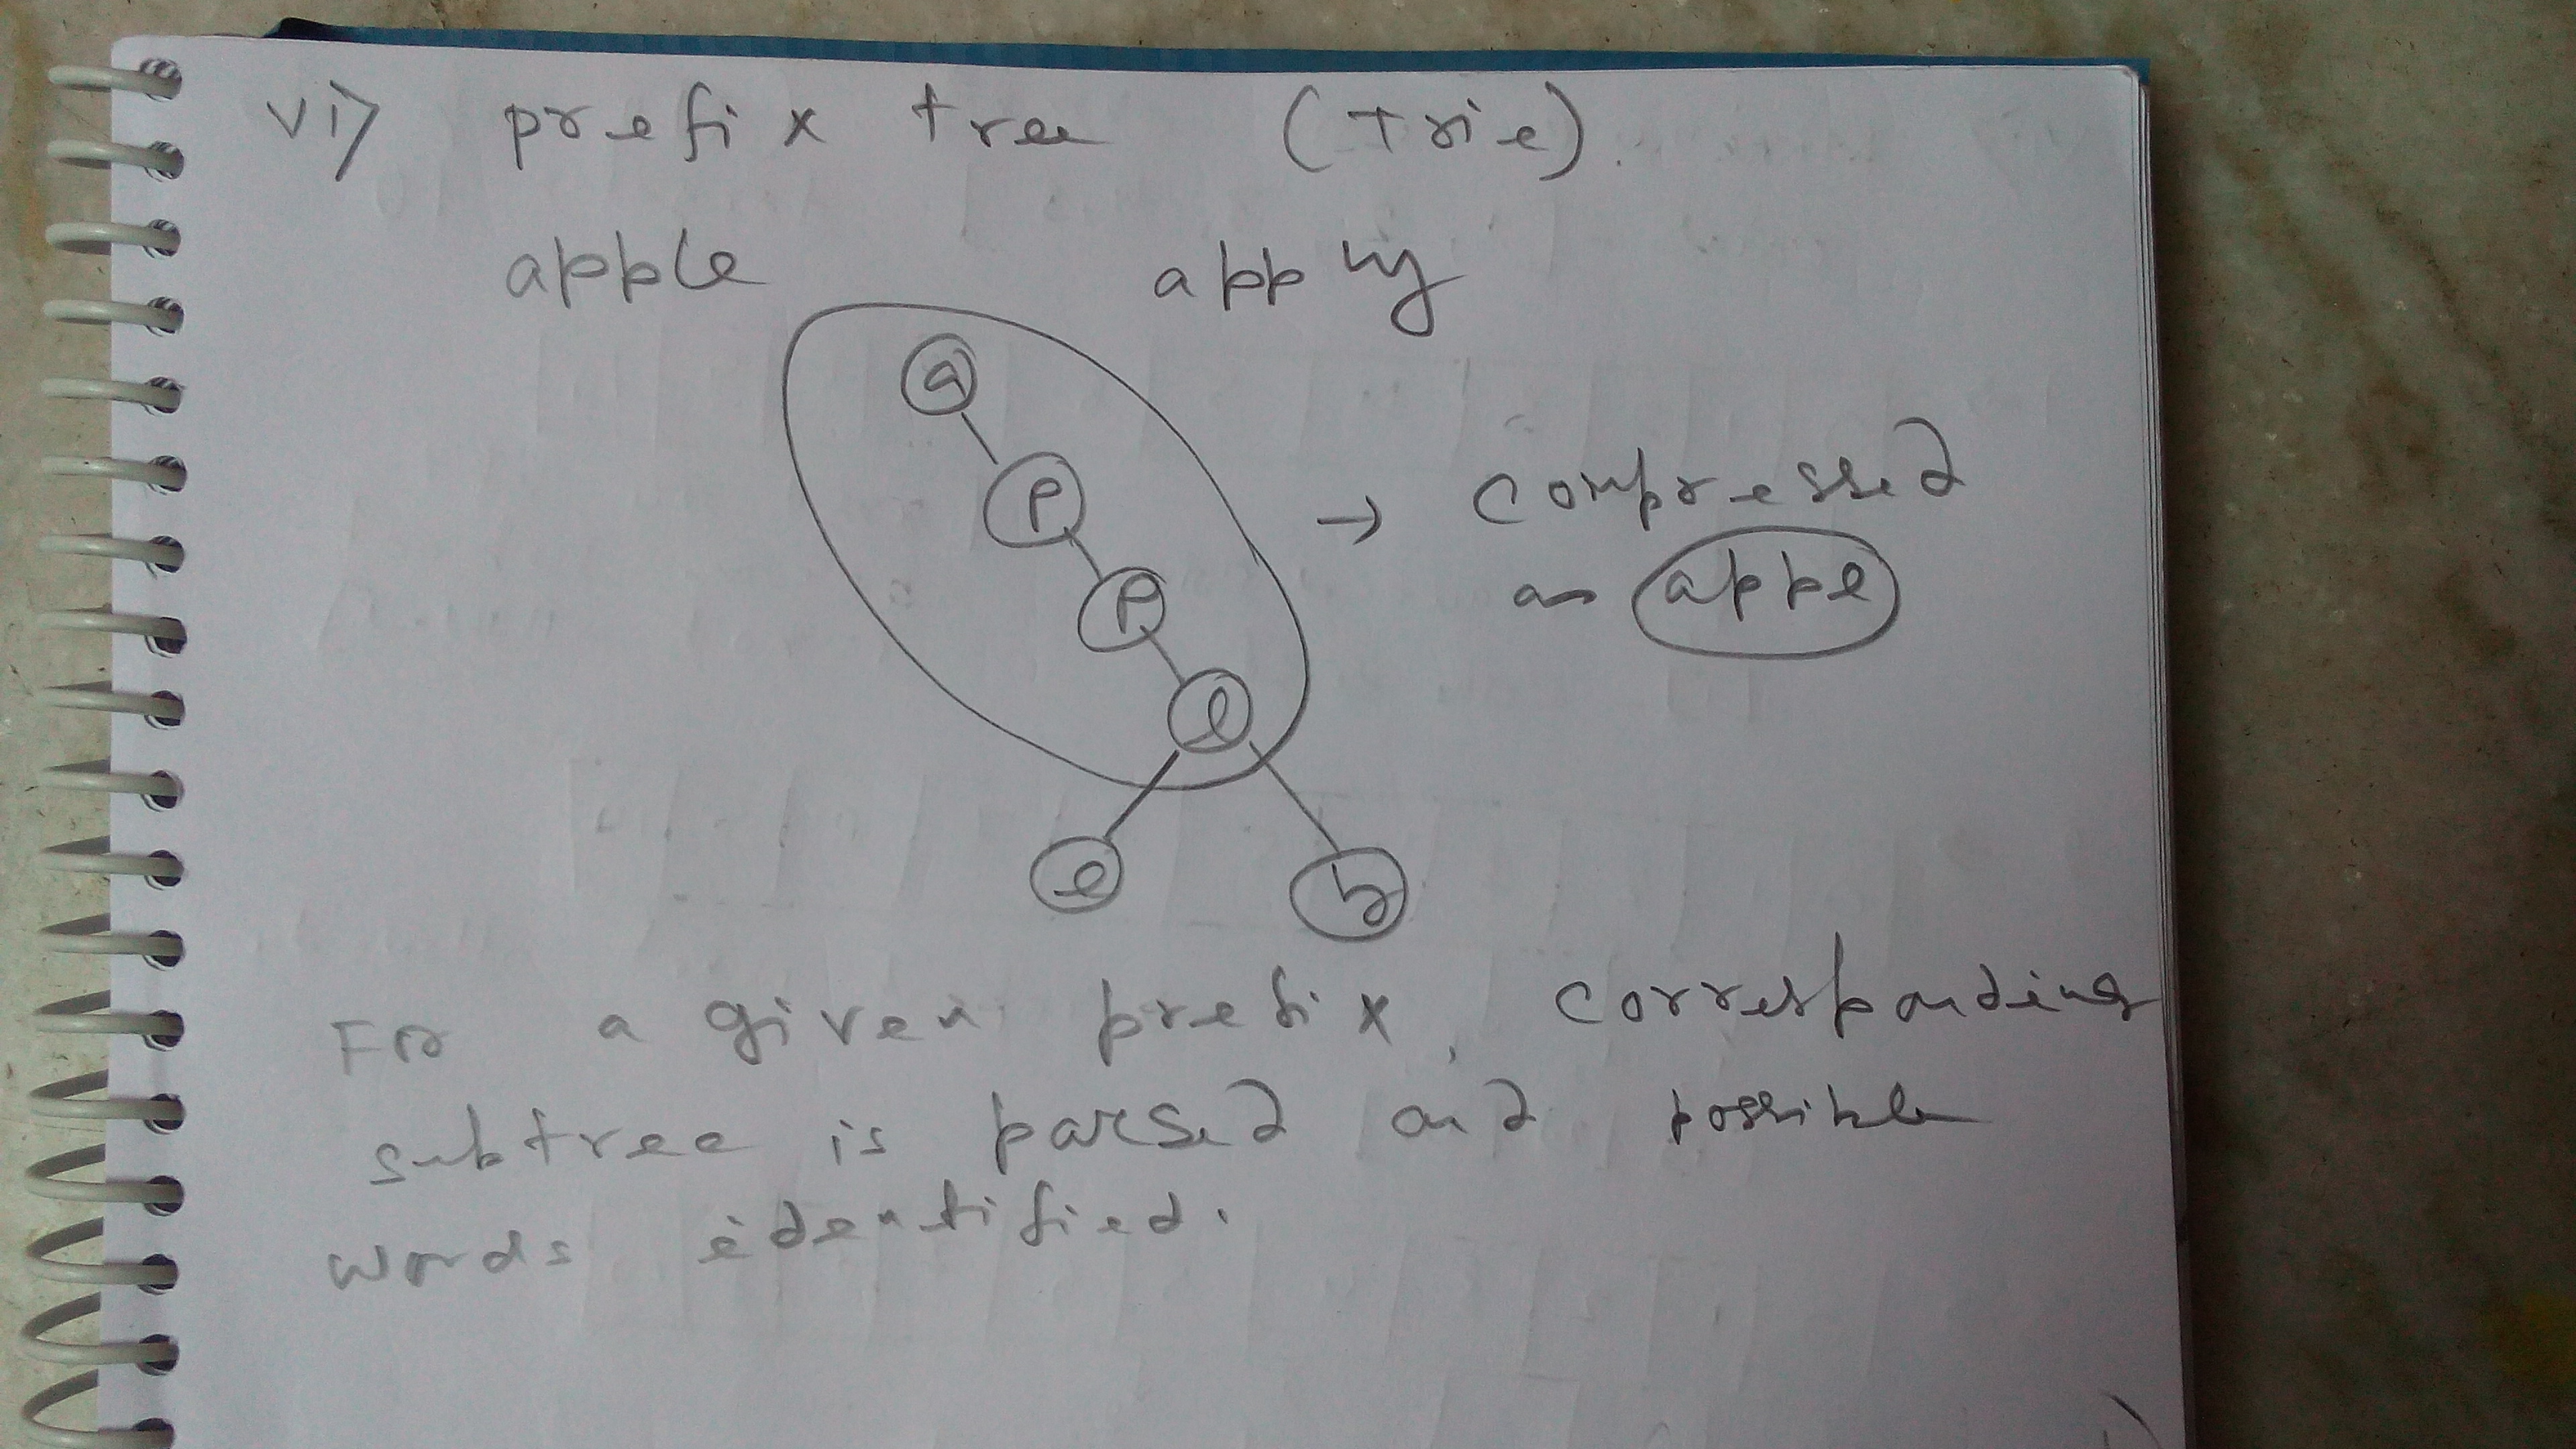 vi) prefix tree (trie).
apple apply
a
p
p
l
e y
→ compressed
as appl
For a given prefix, corresponding
subtree is parsed and possible
words identified.